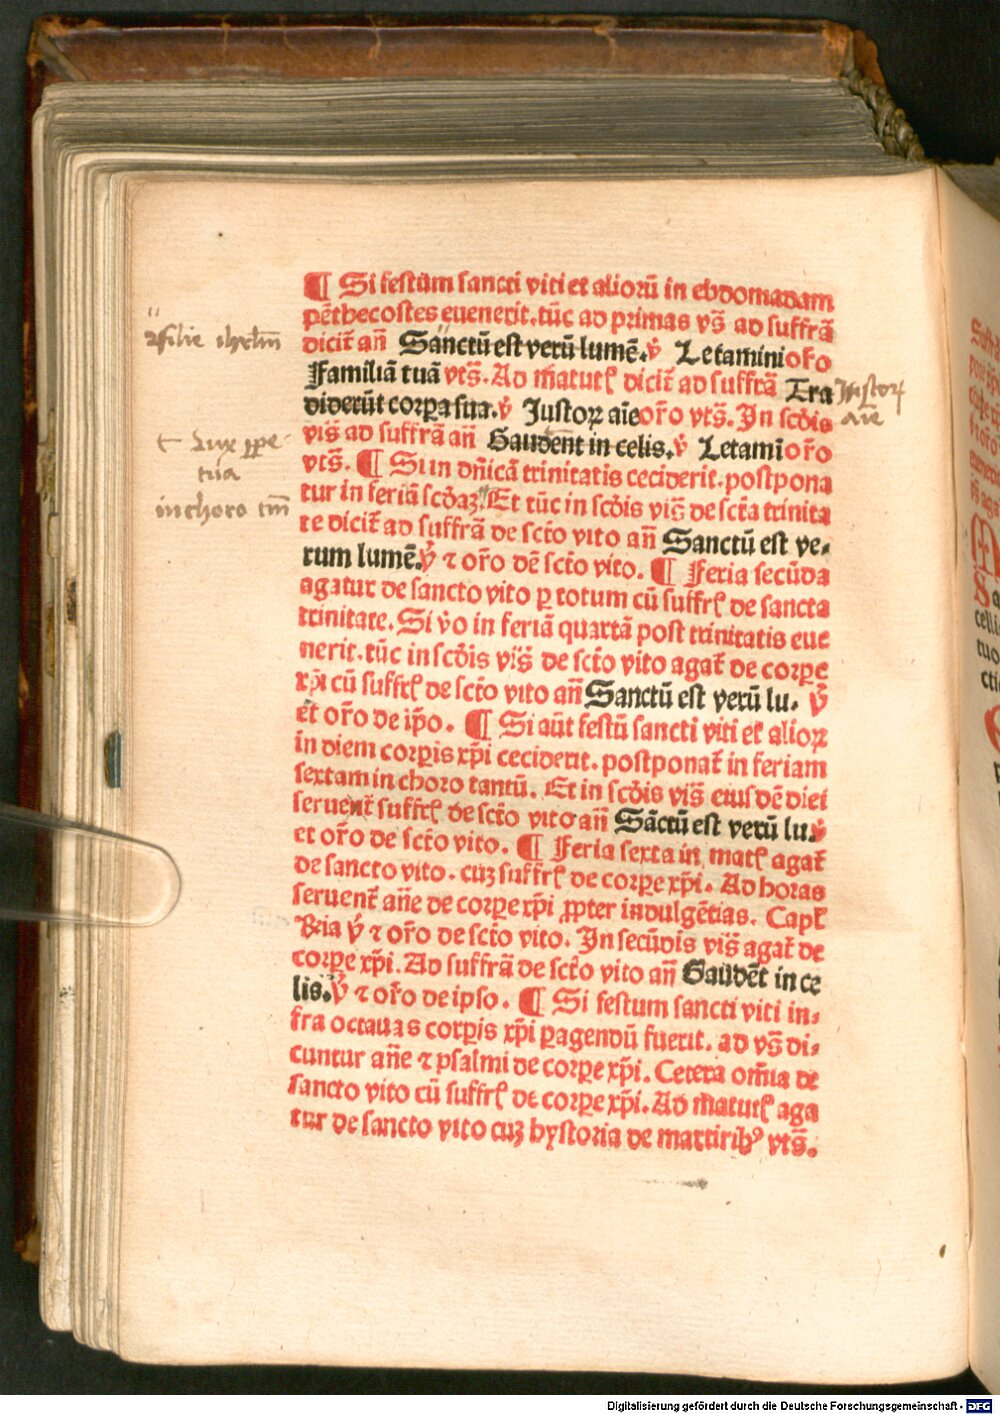 ¶ Si festum sancti viti et alioꝝ in ebdomadam
pēthecostes euenerit. tūc ad primas vs̄ ad suffrā
dicit̄ an̄ Sanctū est verū lumē. v̄ Letamini or̄o
Familiā tuā vts̄. Ad matutꝭ dicit̄ ad suffrā Tra
diderūt corpa sua. v̄ Justoꝝ aīe or̄o vts̄. In scd̄is
vīs ad suffrā an̄ Gaudent in celis. v̄ Letamī or̄o
vts̄. ¶ Si in dn̄icā trinitatis ceciderit. postpona
tur in feriā scd̄aꝫ. Et tūc in scd̄is vis̄ de sct̄a trinita
te dicit̄ ad suffrā de sct̄o vito an̄ Sanctū est ve⸗
rum lumē. v̄ ⁊ or̄o de sct̄o vito. ¶ Feria secūda
agatur de sancto vito ꝑ totum cū suffrꝭ de sancta
trinitate. Si v̄o in feriā quartā post trinitatis eue
nerit. tūc in scd̄is vis̄ de sct̄o vito agat̄ de corpe
xp̄i cū suffrꝭ de sct̄o vito an̄ Sanctū est verū lu. v̄
et or̄o de ip̄o. ¶ Si aūt festū sancti viti et alioꝝ
in diem corpis xp̄i ceciderit. postponat̄ in feriam
sextam in choro tantū. Et in scd̄is vis̄ eius dē diei
seruent̄ suffrꝭ de sct̄o vito an̄ Sāctū est verū lu. v̄
et or̄o de sct̄o vito. ¶ Feria sexta in matꝭ agat̄
de sancto vito. cuꝫ suffrꝭ de corpe xp̄i. Ad horas
seruent̄ an̄e de corpe xp̄i ꝓpter indulgētias. Capl̄
Rn̄ia v̄ ⁊ or̄o de sct̄o vito. In secūdis vis̄ agat̄ de
corpe xp̄i. Ad suffrā de sct̄o vito an̄ Gaudēt in ce
lis. v̄ ⁊ or̄o de ipso. ¶ Si festum sancti viti in⸗
fra octauas corpis xp̄i ꝑagendū fuerit. ad vs̄ di⸗
cuntur an̄e ⁊ psalmi de corpe xp̄i. Cetera om̄ia de
sancto vito cū suffrꝭ de corpe xp̄i. Ad matutꝭ aga
tur de sancto vito cuꝫ hystoria de martirib⁹ vts̄.
filie ihrlm̄
Justoꝝ
aīe
t Lux ꝑpe-
tua
in choro tm̄
Digitalisierung gefördert durch die Deutsche Forschungsgemeinschaft - DFG